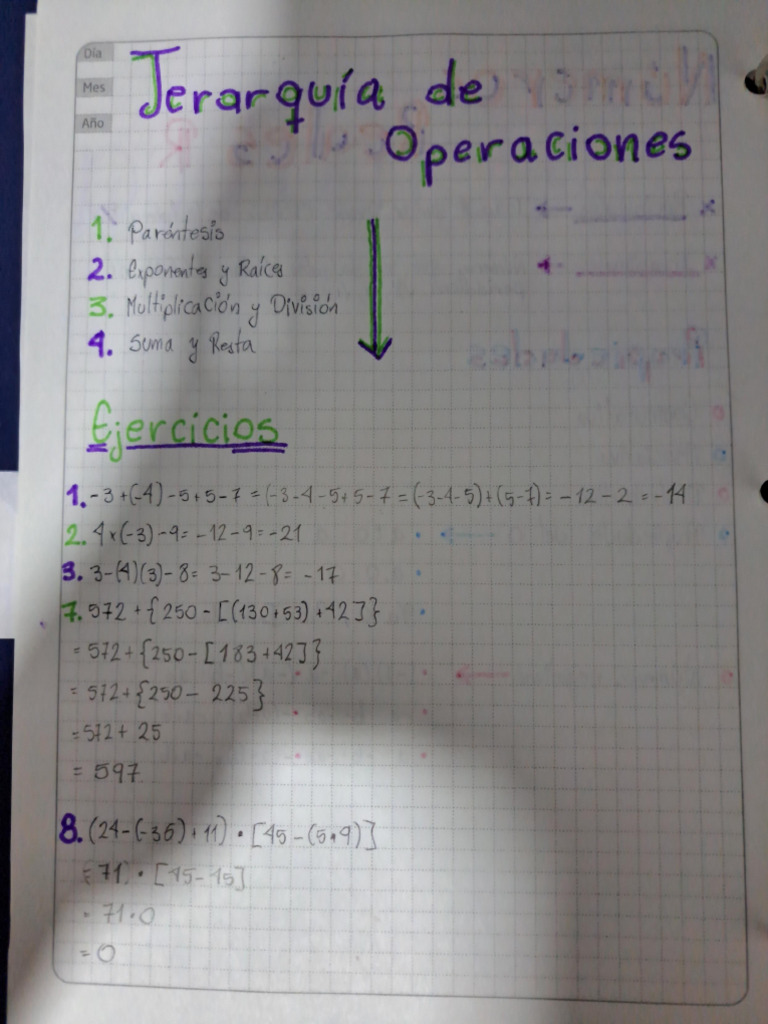 Día
Mes
Año
Jerarquía de
Operaciones
1. Paréntesis
2. Exponentes y Raíces
3. Multiplicación y División
4. Suma y Resta
Ejercicios
1. -3+(-4)-5+5-7 = (-3-4-5+5-7 = (-3-4-5)+(5-7) = -12-2 = -14
2. 4×(-3)-9= -12-9=-21
3. 3-(4)(3)-8= 3-12-8= -17
7. 572+{250-[(130+53)+42]}
= 572+{250-[183+42]}
= 572+{250- 225}
=572+ 25
= 597
8. (24-(-36)+11)·[45-(5·9)]
=(71)·[45-45]
= 71·0
=0